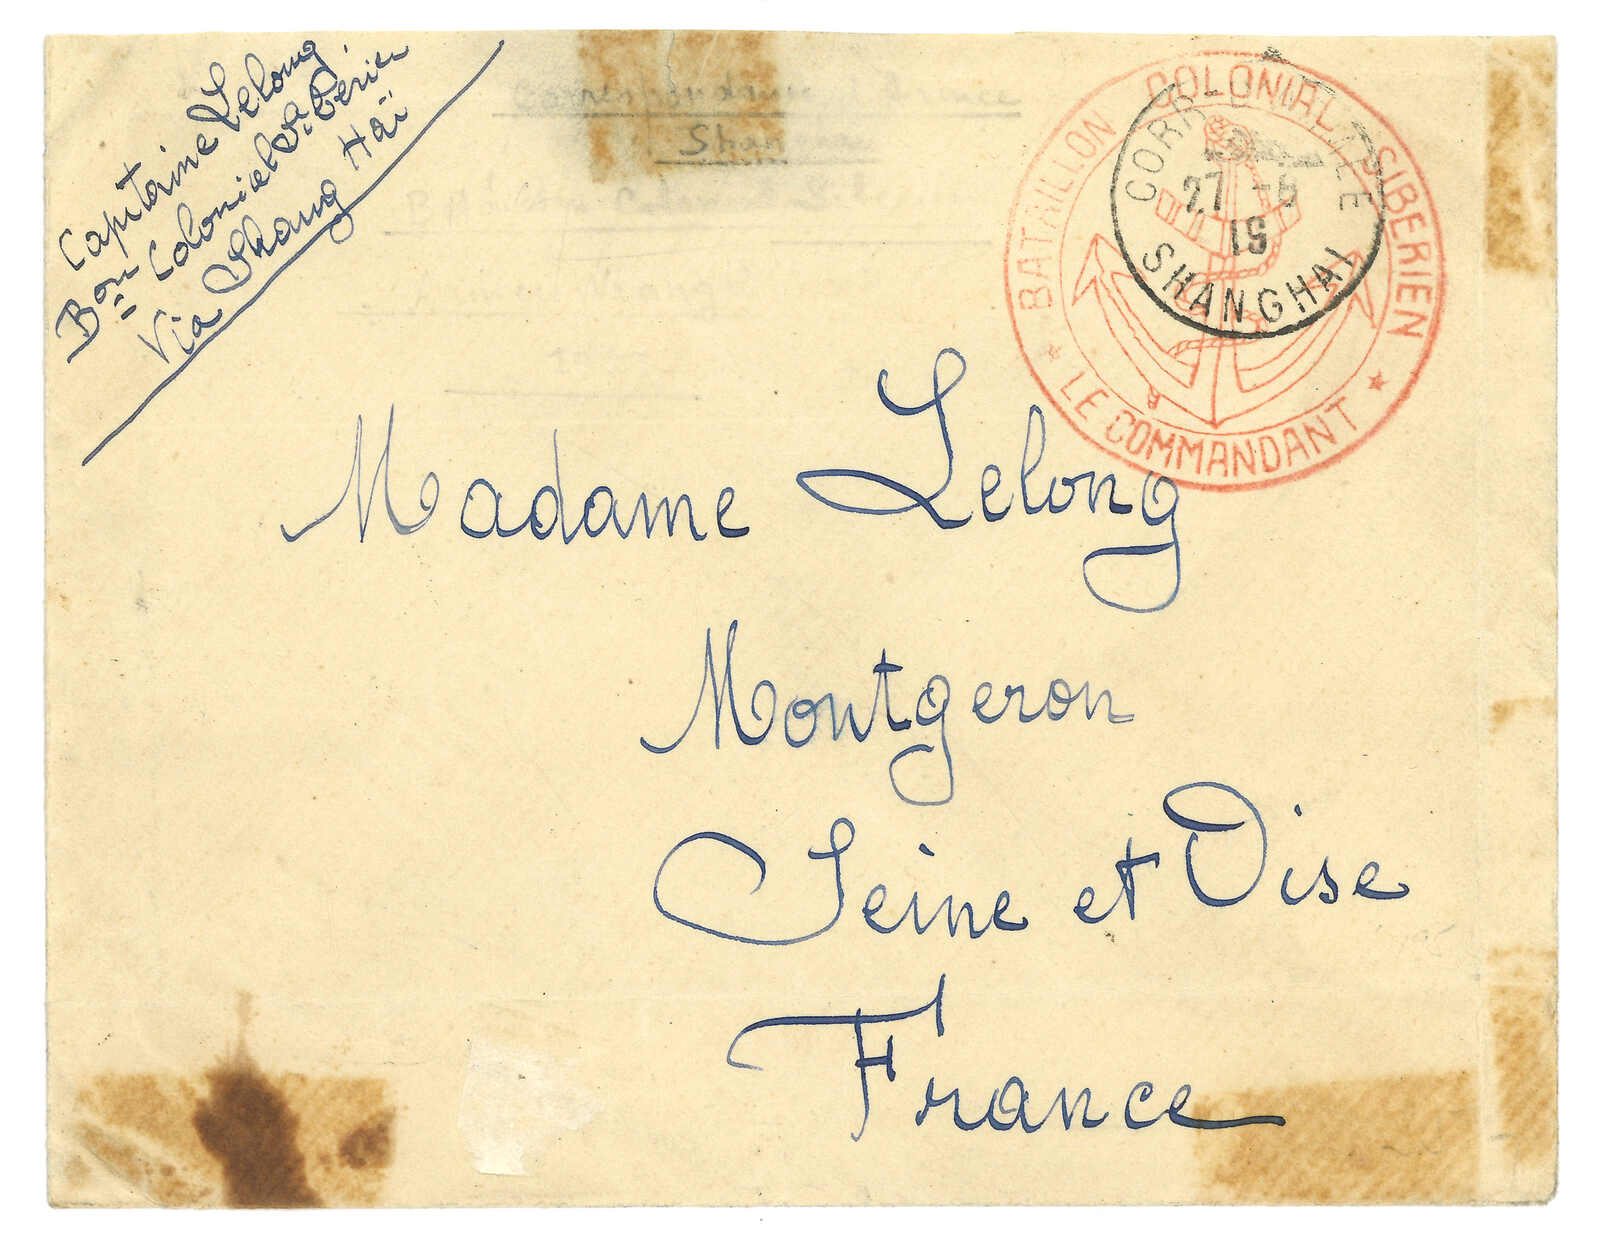 Capitaine Lelong
Bon Colonial Sibérien
Via Shang Haï
Correspondance
Shan
BATAILLON COLONIAL SIBERIEN
LE COMMANDANT
CORR
27 -5
19
SHANGHAI
Madame Lelong
Montgeron
Seine et Oise
France